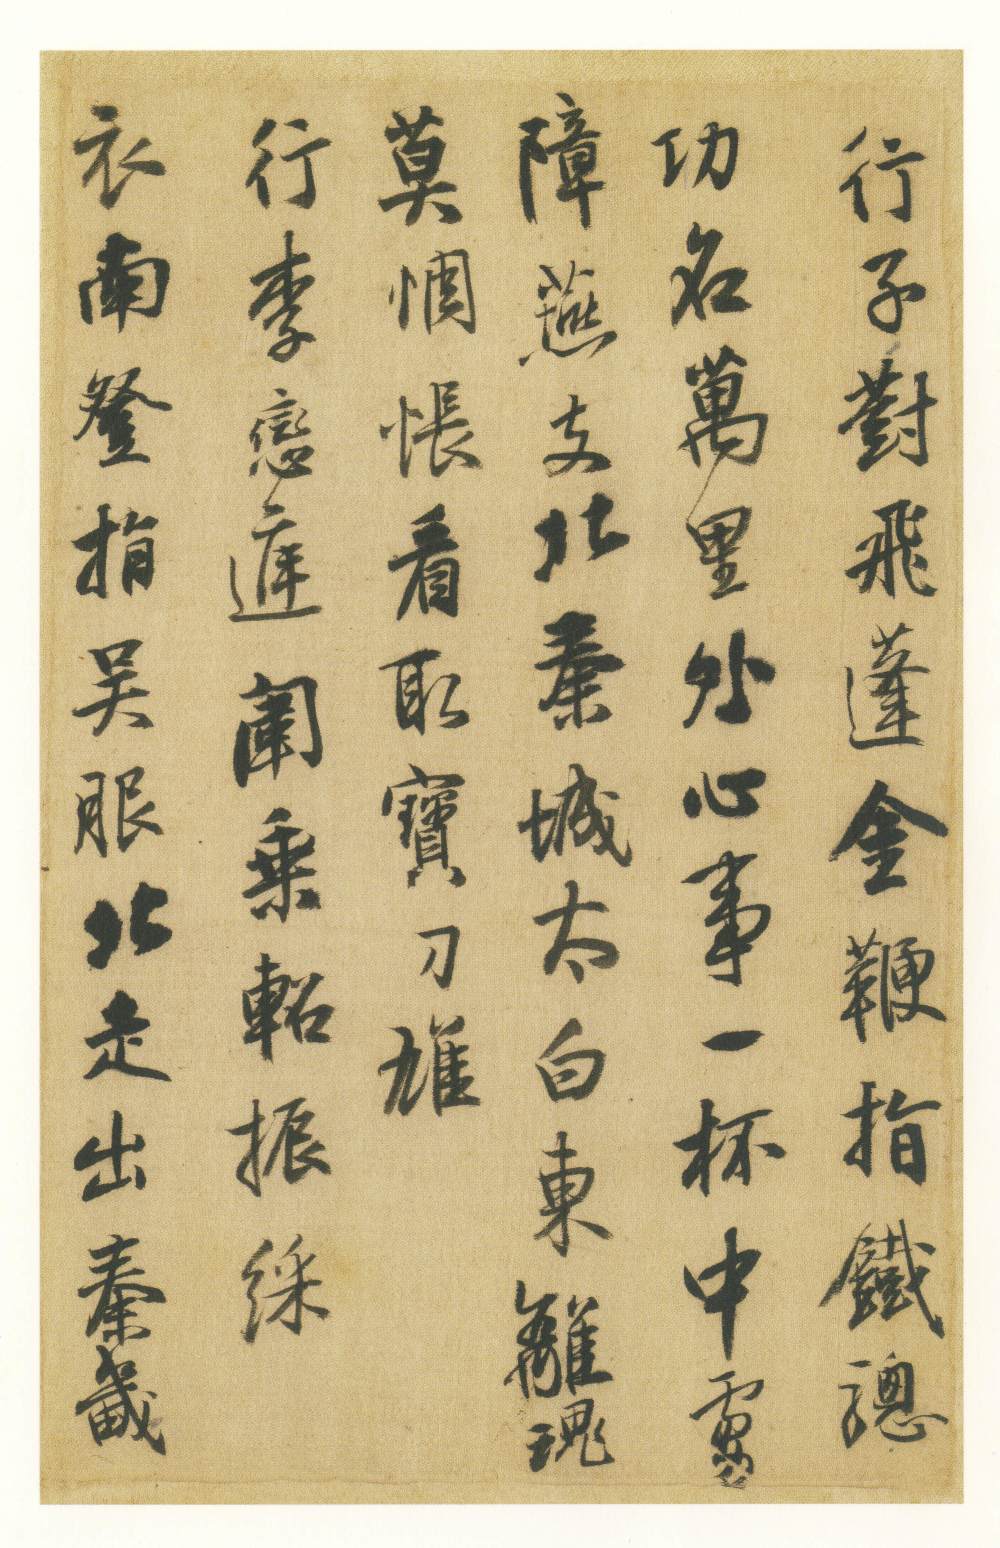 行子對飛蓬金鞭指鐵驄
功名萬里外心事一杯中虜
障燕支北秦城太白東離魂
莫惆悵看取寶刀雄
行李戀庭闈乘軺振綵
衣南登指吳服北走出秦畿